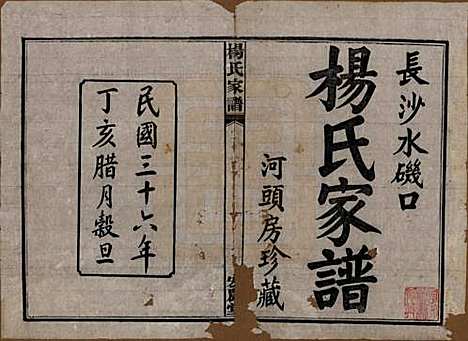 長沙水磯口
楊氏家譜
河頭房珍藏
楊氏家譜
民國三十六年
丁亥腊月穀旦